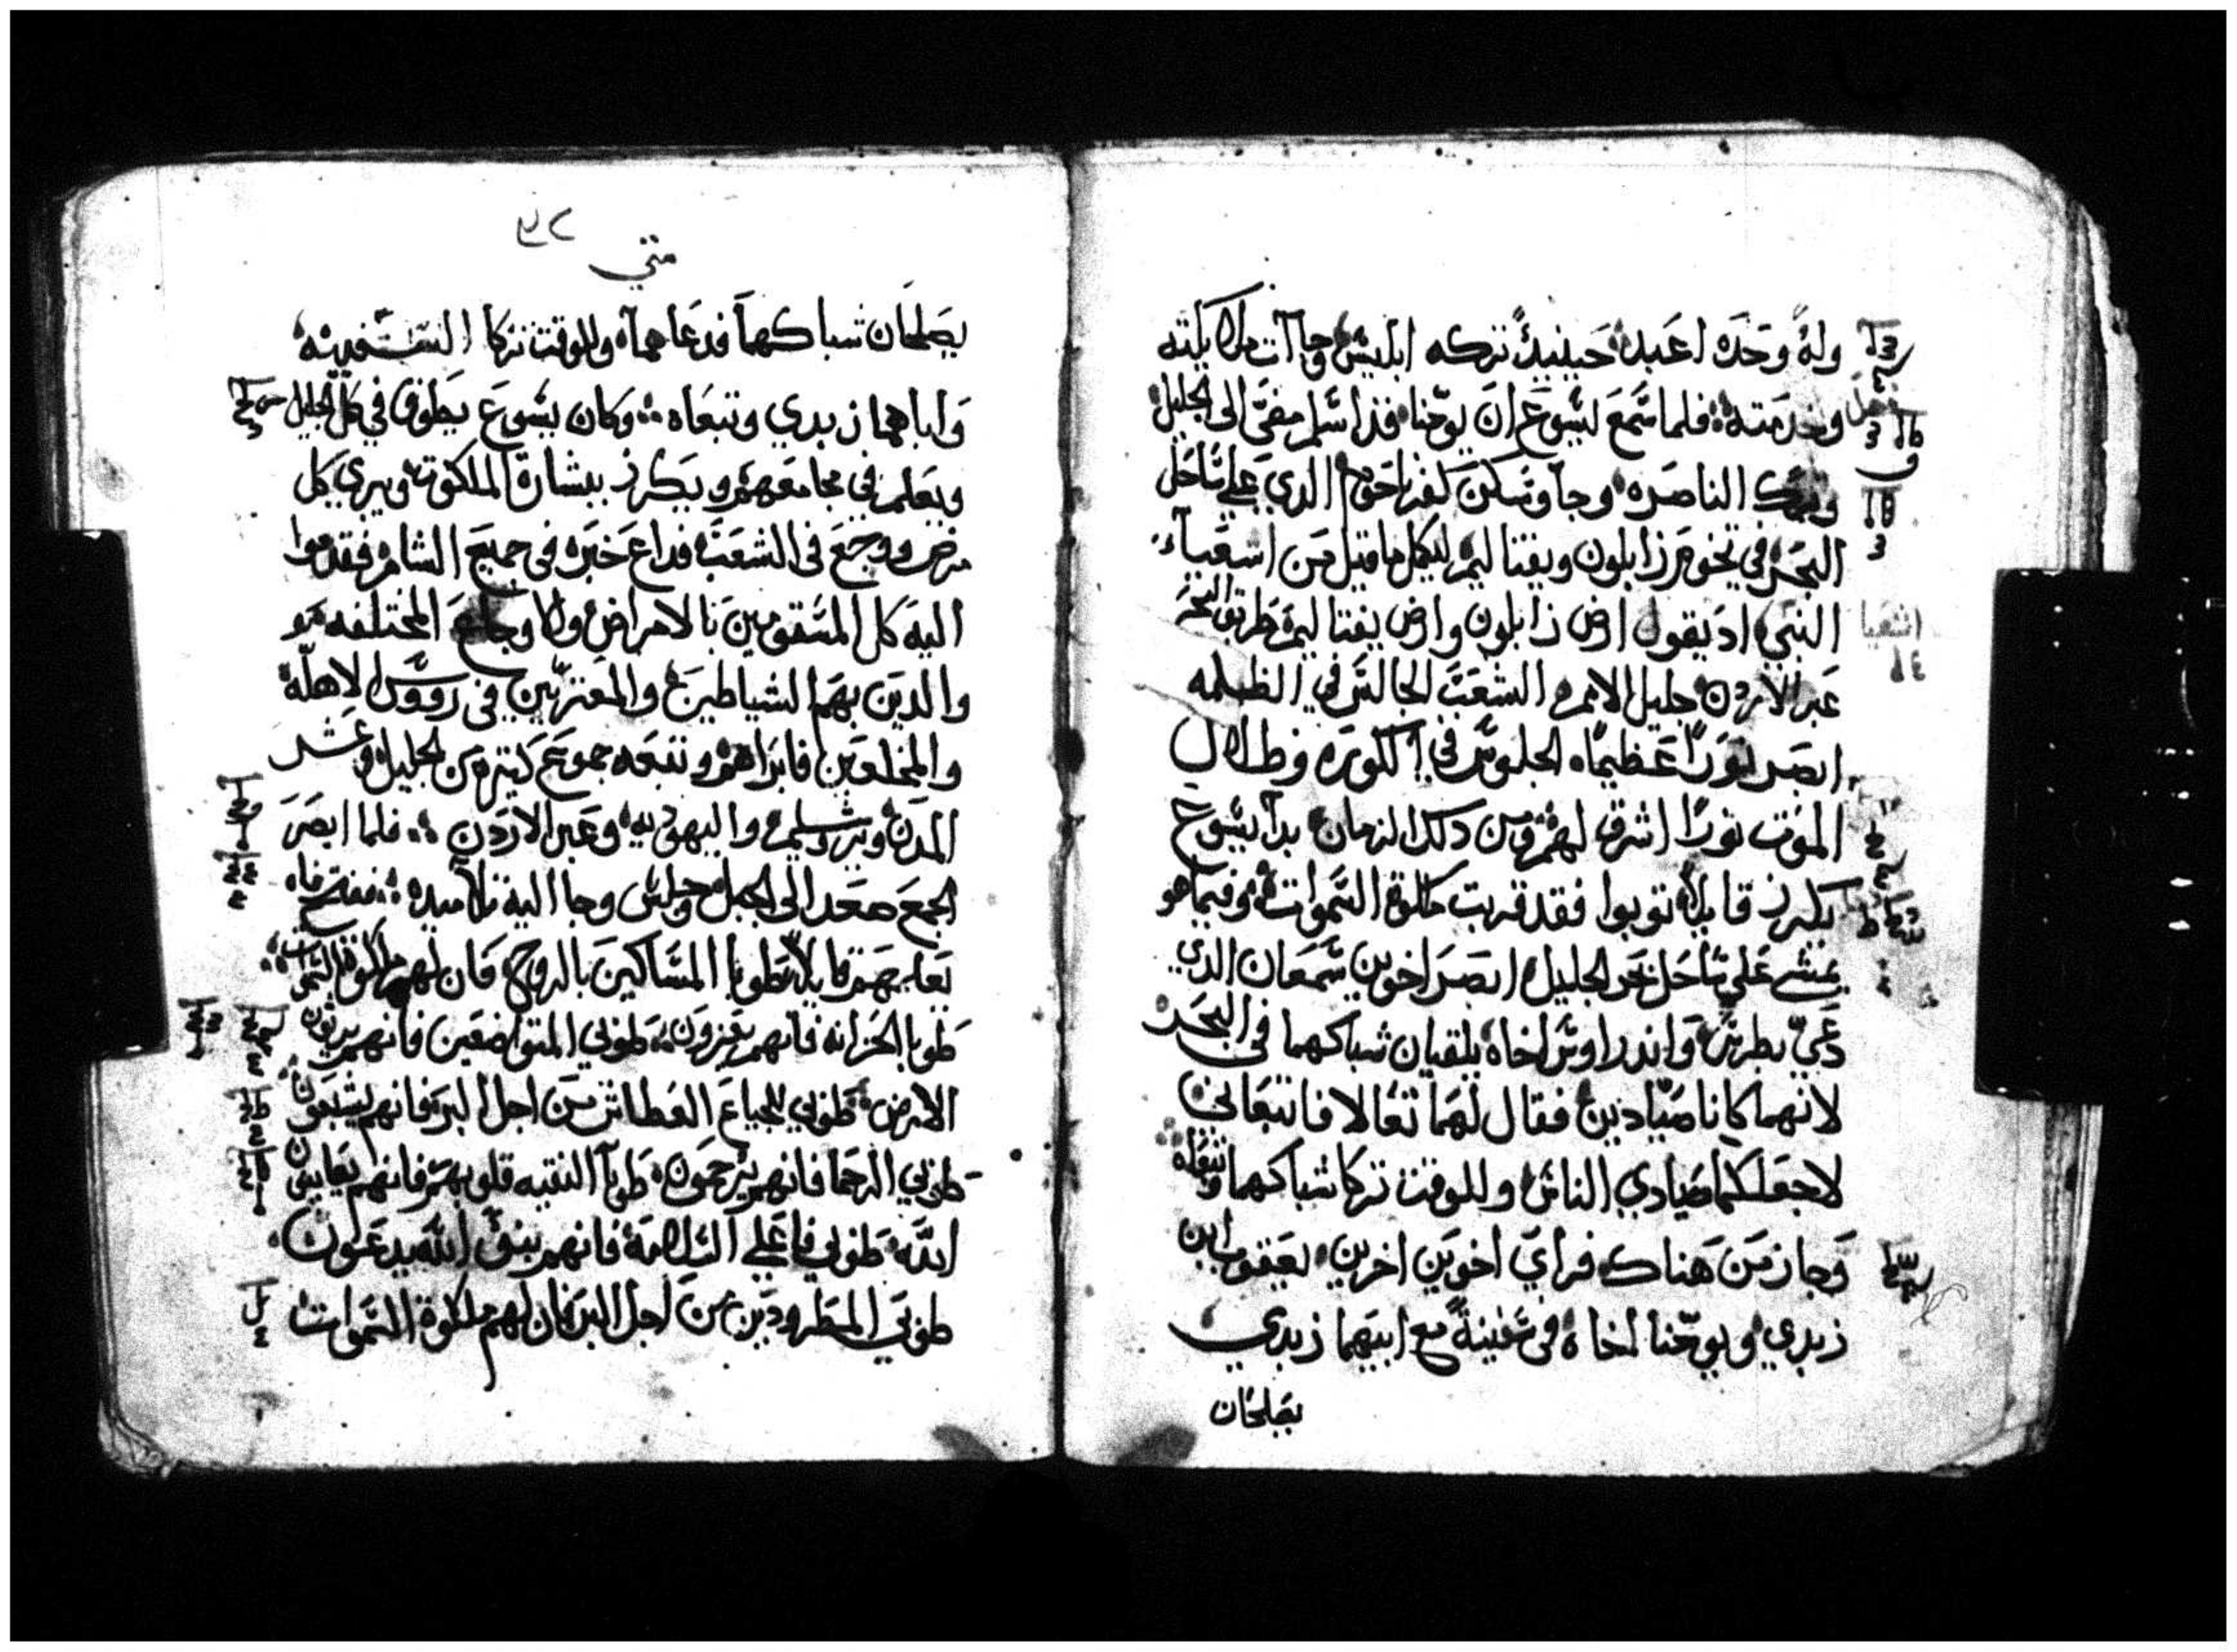 وله وحده اعبد حينيذ تركه ابليس وجاات ملايكته
وخدمته فلما سمع ليسوع ان يوحنا قد اسلم مضى الى الجليل
وترك الناصره وجا وسكن كفرناحوم الدي علي ساحل
البحر في تخوم زابلون ونفتاليم ليكمل ما قيل من اشعيا
النبي اد يقول ارض زابلون وارض نفتاليم طريق البحر
اشعيا
عبر الاردن جليل الامم الشعب الجالس في الظلمه
ابصر نورًا عظيمًا الجلوس في الكوره وظلال
الموت نورًا اشرق لهم ومن دلك الزمان بدا يسوع
يكرز قايلا توبوا فقد قربت ملكوة السموات وفيما هو
يمشي علي ساحل بحر الجليل ابصر اخوين سمعان الدي
دعي بطرس واندراوس اخاه يلقيان شباكهما في البحر
لانهما كانا صيادين فقال لهما تعالا فاتبعاني
لاجعلكما صيادي الناس وللوقت تركا شباكهما وتبعاه
وجاز من هناك فراي اخوين اخرين يعقوب ابن
زبدي ويوحنا اخاه في سفينة مع ابيهما زبدي
يصلحان
متي
يصلحان شباكهما فدعاهما وللوقت تركا السفينه
واباهما زبدي وتبعاه وكان يسوع يطوف في كل الجليل
ويعلم في مجامعهم ويكرز ببشارة الملكوت ويبري كل
مرض ووجع في الشعب فداع خبره في جميع الشام فقدموا
اليه كل المسقومين بالامراض والاوجاع المختلفه
والدين بهم الشياطين والمعتريين في رووس الاهلة
والمخلعين فابراهم وتبعه جموع كتيره من الجليل وعشر
المدن ويروشليم واليهوديه وعبر الاردن فلما ابصر
الجمع صعد الى الجبل وجلس وجا اليه تلاميده ففتح فاه
يعلمهم قايلا طوبا المساكين بالروح فان لهم ملكوة السموات
طوبا الحزانه فانهم يعزون طوبي المتواضعين فانهم يرتون
الارض طوبي للجياع العطاش من اجل البر فانهم يشبعون
طوبي الرحما فانهم يرحمون طوبا النقيه قلوبهم فانهم يعاينون
الله طوبي فاعلي السلامة فانهم بنى الله يدعون
طوبي المطرودين من اجل البر فان لهم ملكوة السموات